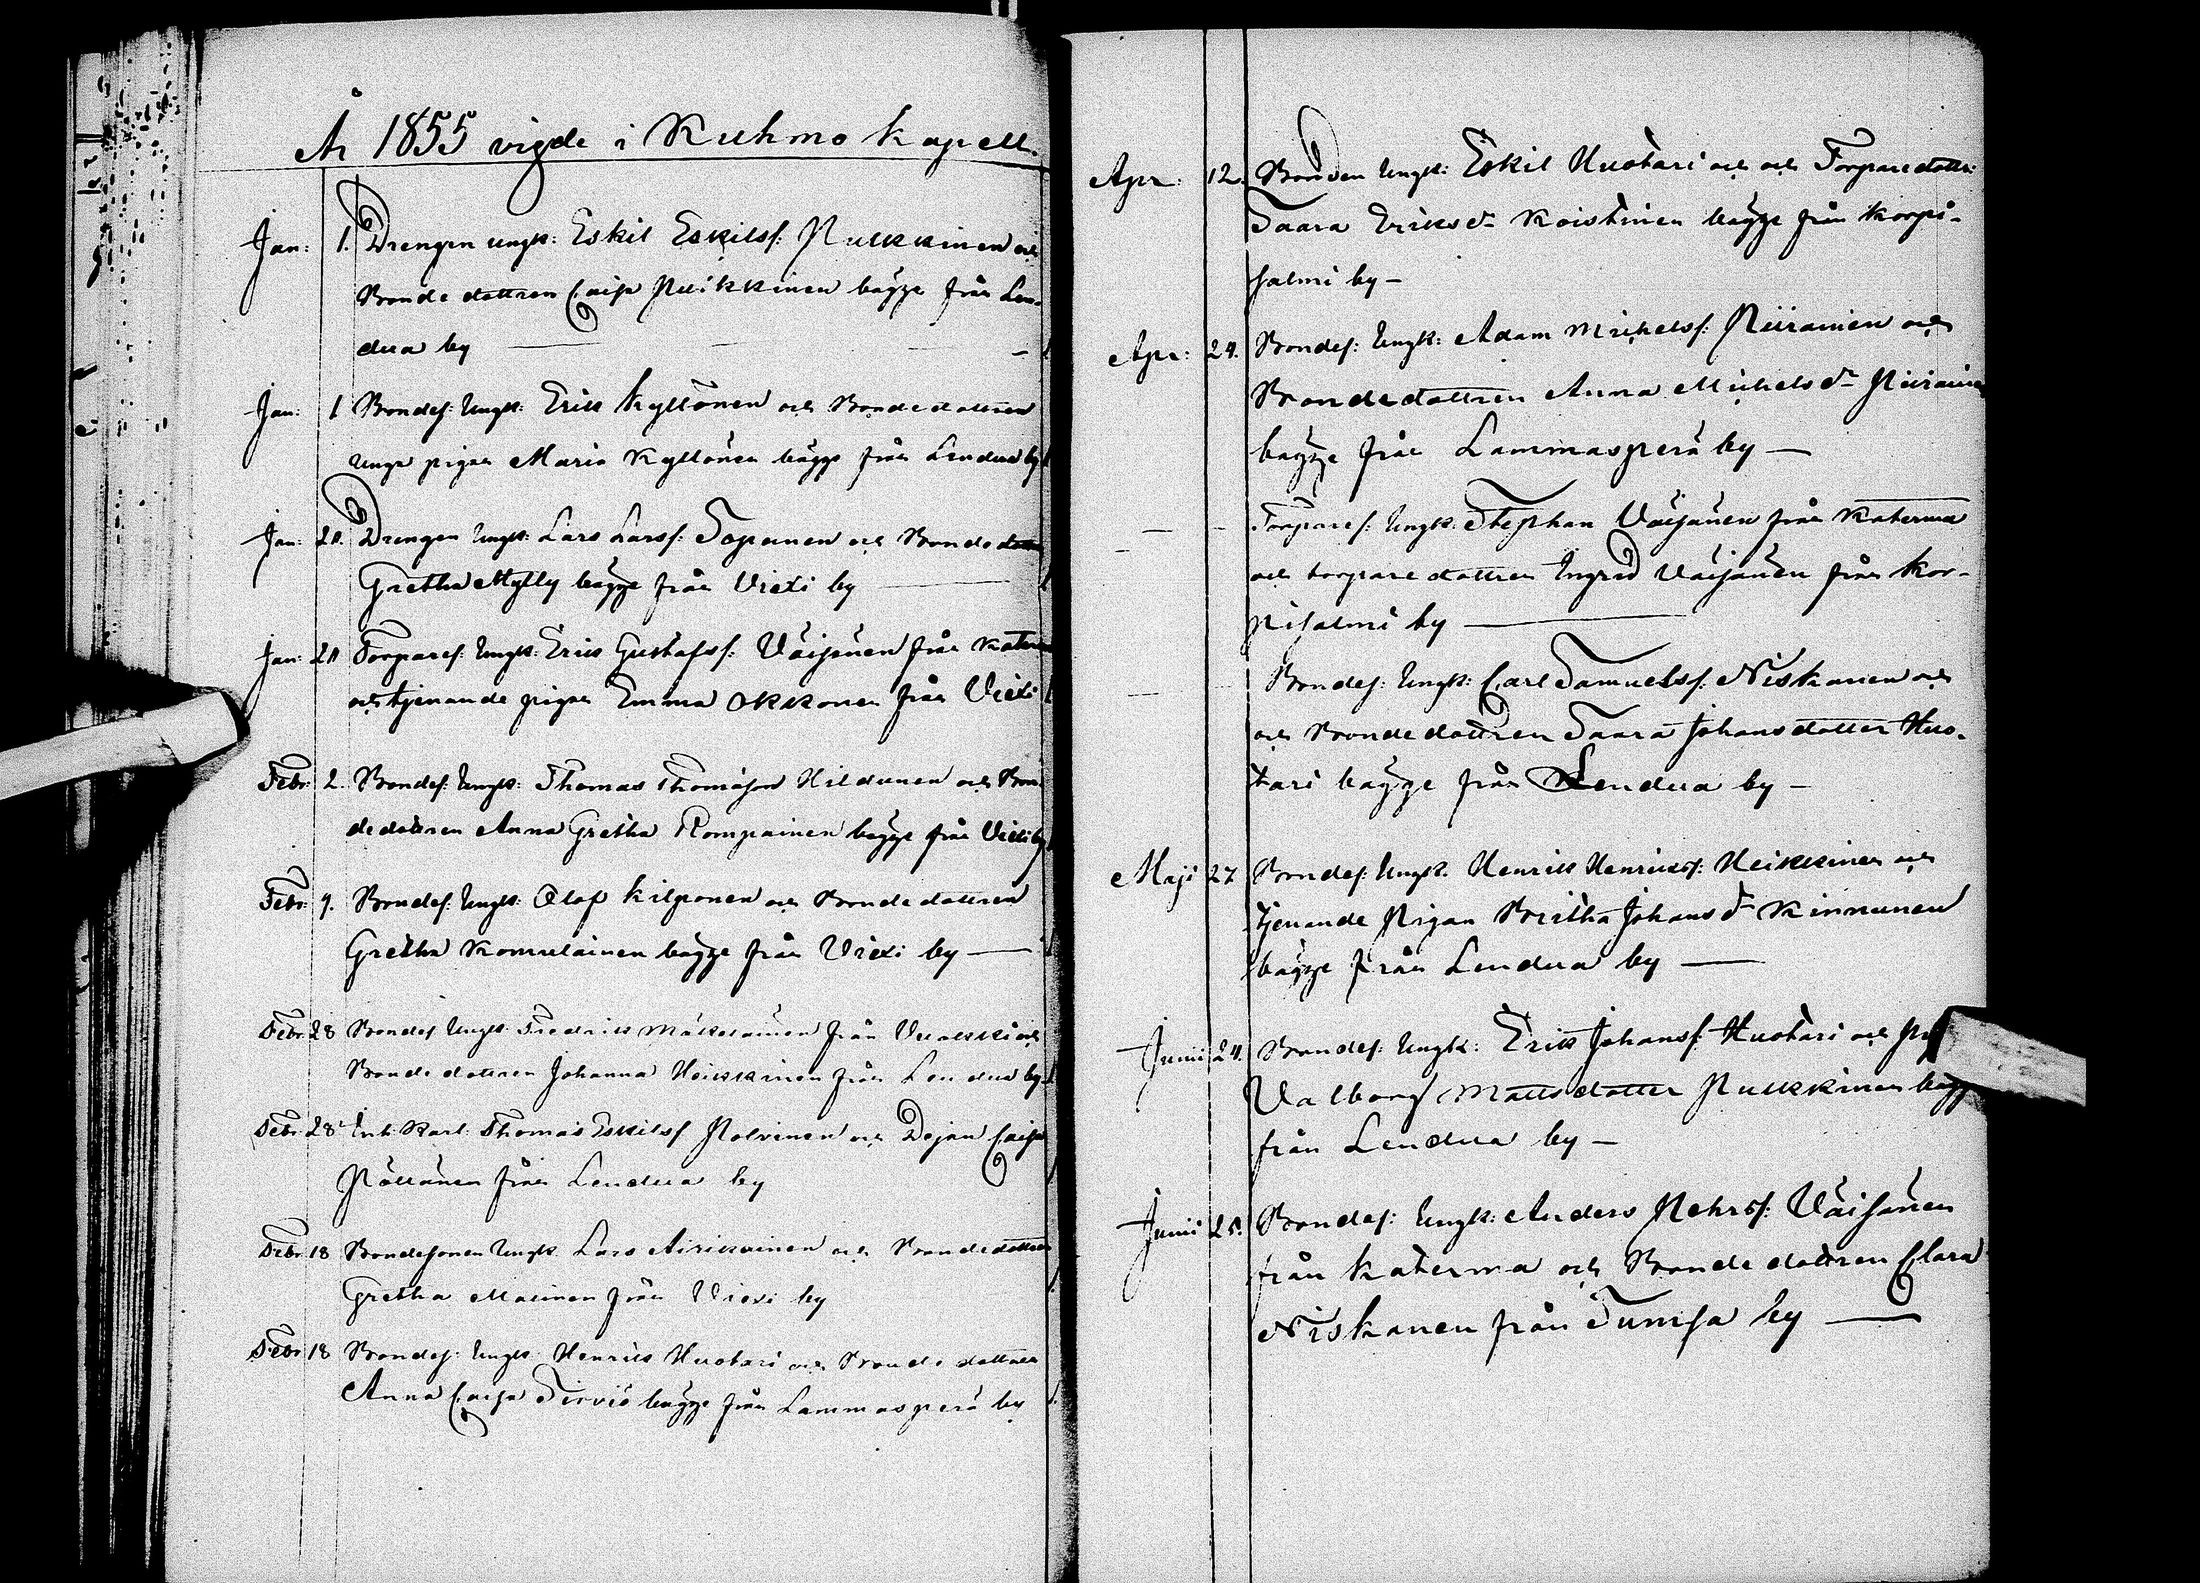 År 1855 vigde i Kuhmo Kapell.
Jan: 1. Drengen ungk: Eskil Eskilss: Pulkkinen och
Bonde dottren Caisa Puikkinen bägge från Len-
dua by
Jan: 1 Bondes: Ungk: Eric Kyllönen och Bonde dottren
unga pigan Maria Kyllönen bägge från Lendua by
Jan: 20. Drengen Ungk: Lars Larss: Topanen och Bonde dottren
Gretha Mylly bägge från Viexi by
Jan: Torpares: Ungk: Eric Gustafss: Väisänen från Katerma
och tjenande pigan Emma Okkonen från Viexi
Febr: 2. Bondes: Ungk: Thomas Thomasson Hildunen och Bon-
dedottren Anna Gretha Rompainen bägge från Viexi by
Febr: 9. Bondes: Ungk: Olof Kilponen och Bonde dottren
Gretha Komulainen bägge från Viexi by
Febr: 28 Bondes Ungk: Fredrick Mäkeläinen från Vuosski och
Bonde dottren Johanna Heikkinen från Lendua by
Febr: 28 Enk: Karl: Thomas Eskilss Polvinen och Dejan Caisa
Pöllänen från Lendua by
Febr: 18 Bondesonen Ungk: Lars Airikainen och Bondedottren
Gretha Malinen från Viexi by
Febr: 18 Bondes: Ungk: Henrick Huotari och Bonde dottren
Anna Caisa Tirviö bägge från Lammasperä by
Apr: 12. Bonden Ungk: Eskil Huotari och och Torparedottr:
Saara Eriksdr Koistinen bägge från Korpi-
salmi by –
Apr: 24. Bondes: Ungk: Adam Michelss: Piirainen och
Bondedottren Anna Michelsdr Piirainen
bägge från Lammasperä by —
– – Torpares: Ungk: Stephan Väisänen från Katerma
och torpare dottren Ingrid Väisänen från Kor-
pisalmi by
– – Bondes: Ungk: Carl Samuelss: Niskanen och
och Bonde dottren Saara Johansdotter Huo-
tari bägge från Lendua by –
Maji 27 Bondes: Ungk: Henrick Henricss: Heikkinen och
tjenande Pigan Britha Johansdr Kinnunen
bägge från Lendua by —
Junii 24. Bondes: Ungk: Erik Johanss: Huotari och
Valborg Mattsdotter Pulkkinen bägge
från Lendua by –
Junii 25. Bondes: Ungk: Anders Pehrss: Väisänen
från Katerma och Bonde dottren Clara
Niskanen från Tumsa by —